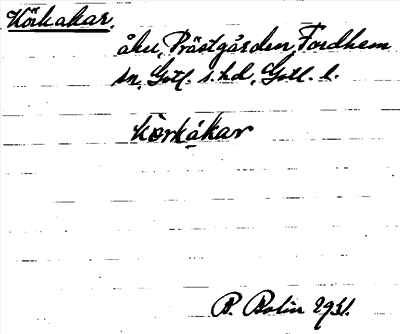 Körkakar.
åker, Prästgården, Fardhem
sn, Gotl. s. hd, Gotl. l.
kœrkakar
B. Bolin 1931.